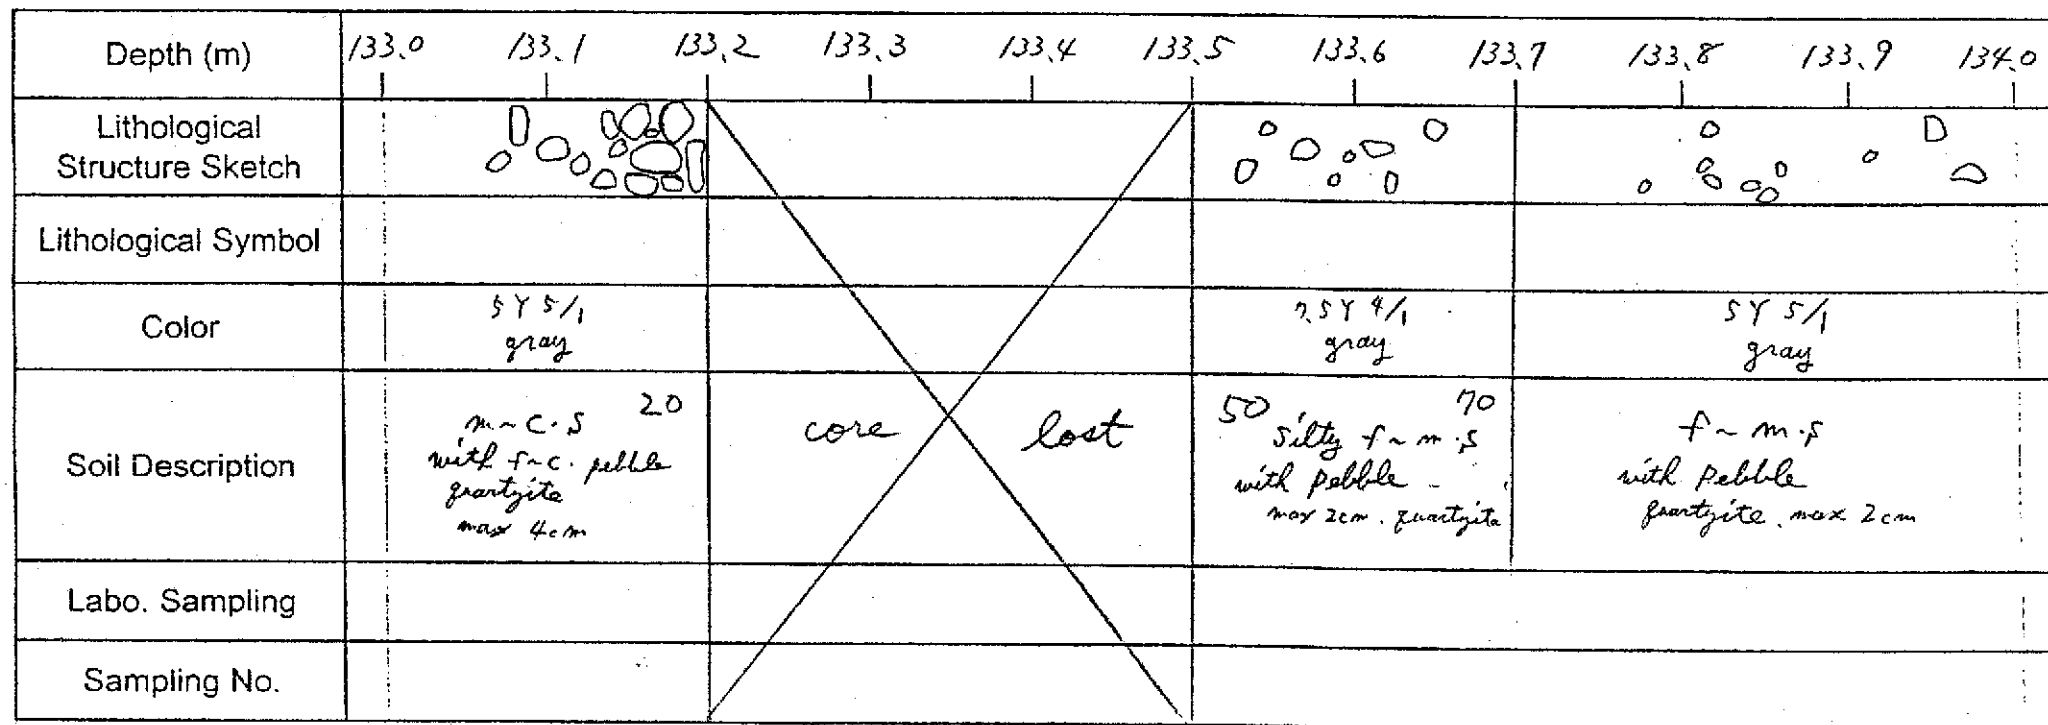 Depth (m) 133.0 133.1 133.2 133.3 133.4 133.5 133.6 133.7 133.8 133.9 134.0
Lithological
Structure Sketch
Lithological Symbol
Color
5Y 5/1
gray
7.5Y 4/1
gray
5Y 5/1
gray
Soil Description
20
m~c.s
with f~c. pebble
quartzite
max 4cm
core lost
50 70
Silty f~m.s
with Pebble
max 2cm. quartzite
f~m.s
with Pebble
quartzite. max 2cm
Labo. Sampling
Sampling No.